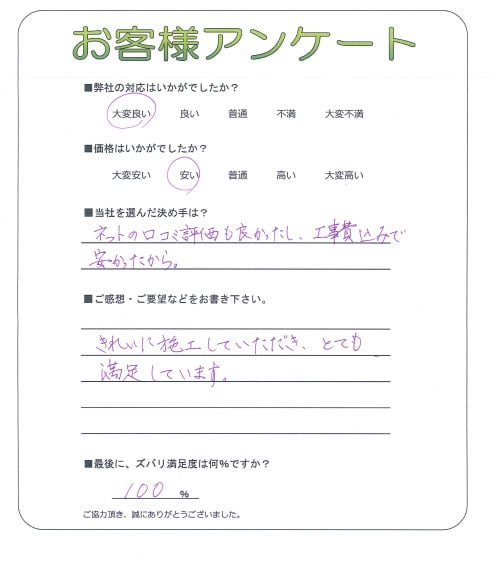 お客様アンケート
■弊社の対応はいかがでしたか？
大変良い 良い 普通 不満 大変不満
■価格はいかがでしたか？
大変安い 安い 普通 高い 大変高い
■当社を選んだ決め手は？
ネットの口コミ評価も良かったし、工事費込みで
安かったから。
■ご感想・ご要望などをお書き下さい。
きれいに施工していただき、とても
満足しています。
■最後に、ズバリ満足度は何％ですか？
100 %
ご協力頂き、誠にありがとうございました。